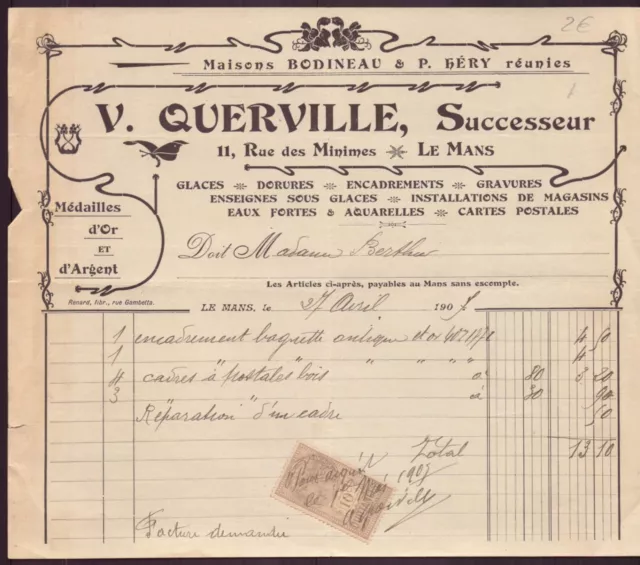 2€
Maisons BODINEAU & P. HÉRY réunies
V. QUERVILLE, Successeur
11, Rue des Minimes LE MANS
GLACES DORURES ENCADREMENTS GRAVURES
ENSEIGNES SOUS GLACES INSTALLATIONS DE MAGASINS
EAUX FORTES & AQUARELLES CARTES POSTALES
Médailles
d'Or
ET
d'Argent
Doit Madame Berthe
Les Articles ci-après, payables au Mans sans escompte.
Renard, libr., rue Gambetta.
LE MANS, le 27 Avril 190
1 encadrement baguette antique et or 4 50
1 " " " " " " 4 "
4 cadres à postales bois à 80 3 20
3 " " à 30 90
Réparation d'un cadre 50
Total 13 10
Pour acquit
Querville
Facture demandée